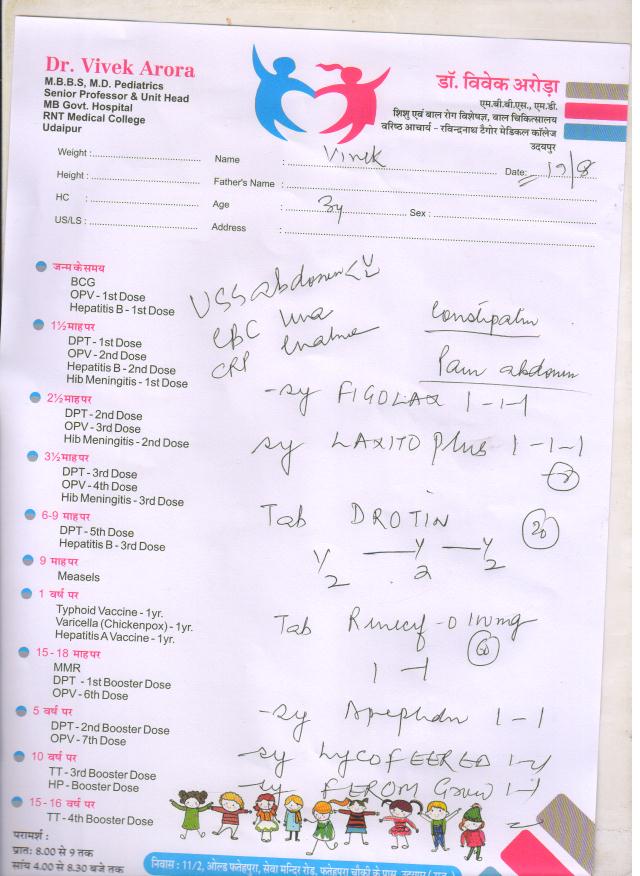 Dr. Vivek Arora
M.B.B.S, M.D. Pediatrics
Senior Professor & Unit Head
MB Govt. Hospital
RNT Medical College
Udaipur
डॉ. विवेक अरोड़ा
एम.बी.बी.एस., एम.डी.
शिशु एवं बाल रोग विशेषज्ञ, बाल चिकित्सालय
वरिष्ठ आचार्य - रविन्द्रनाथ टैगोर मेडिकल कॉलेज
उदयपुर
Weight :
Name : Vivek
Date: 19/8
Height :
Father's Name :
HC :
Age : 3y
Sex :
US/LS :
Address :
जन्म के समय
BCG
OPV - 1st Dose
Hepatitis B - 1st Dose
USS abdomen
CBC
CRP
Constipation
Pain abdomen
1½ माह पर
DPT - 1st Dose
OPV - 2nd Dose
Hepatitis B - 2nd Dose
Hib Meningitis - 1st Dose
- sy FIGOLAX 1-1-1
2½ माह पर
DPT - 2nd Dose
OPV - 3rd Dose
Hib Meningitis - 2nd Dose
sy LAXITO Plus 1-1-1
3½ माह पर
DPT - 3rd Dose
OPV - 4th Dose
Hib Meningitis - 3rd Dose
6-9 माह पर
DPT - 5th Dose
Hepatitis B - 3rd Dose
Tab DROTIN 20
1/2 — 1/2 — 1/2
9 माह पर
Measels
1 वर्ष पर
Typhoid Vaccine - 1yr.
Varicella (Chickenpox) - 1yr.
Hepatitis A Vaccine - 1yr.
Tab
60
1 - 1
15 - 18 माह पर
MMR
DPT - 1st Booster Dose
OPV - 6th Dose
5 वर्ष पर
DPT - 2nd Booster Dose
OPV - 7th Dose
- sy 1 - 1
10 वर्ष पर
TT - 3rd Booster Dose
HP - Booster Dose
- sy LYCOFEERED 1-1
- sy 1-1
15-16 वर्ष पर
TT - 4th Booster Dose
परामर्श :
प्रातः 8.00 से 9 तक
सांय 4.00 से 8.30 बजे तक
निवास : 11/2, ओल्ड फतेहपुरा, सेवा मन्दिर रोड, फतेहपुरा चौकी के पास, उदयपुर (राज.)